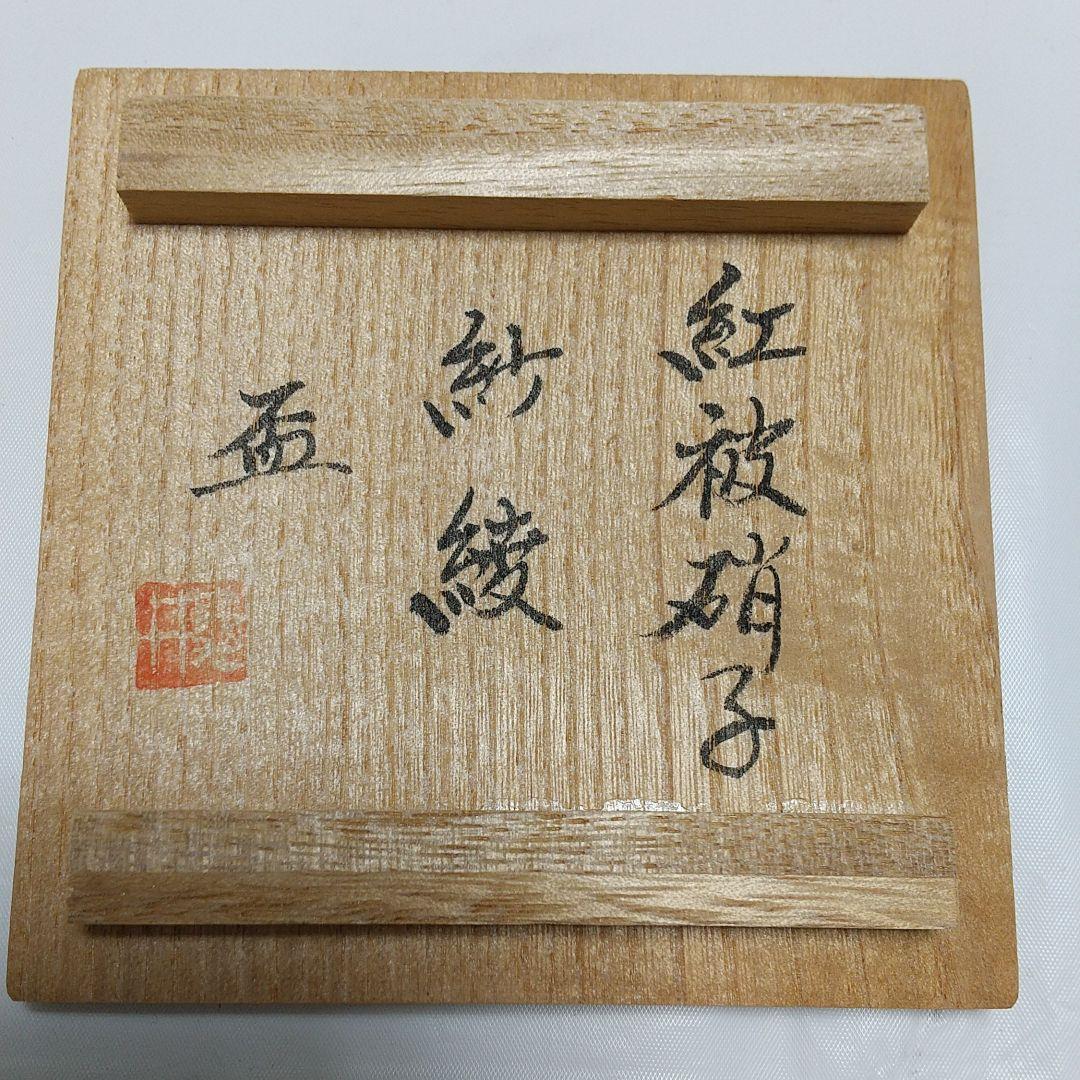 紅被硝子
紗綾
盃